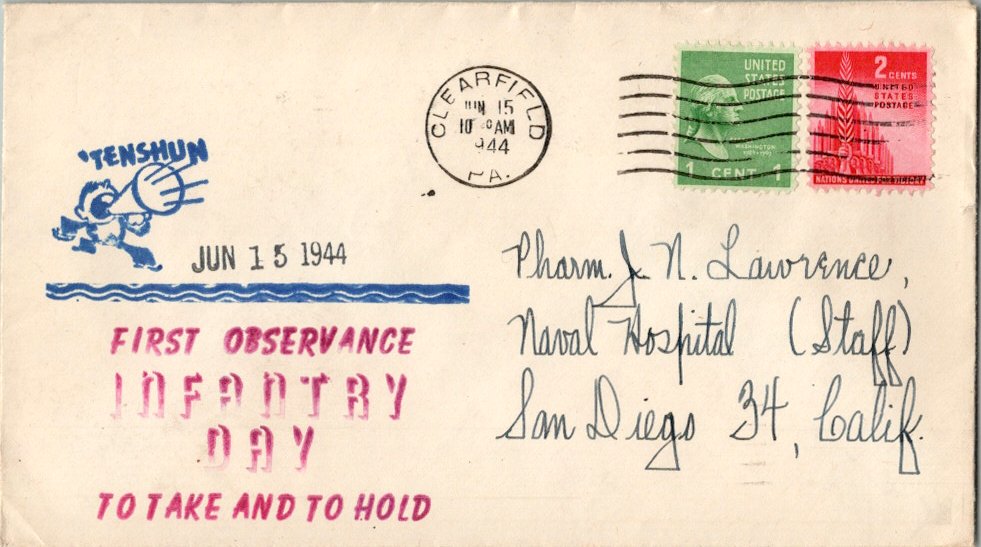 CLEARFIELD
JUN 15
10 AM
1944
PA.
UNITED
STATES
POSTAGE
WASHINGTON
1 CENT 1
2 CENTS
UNITED
STATES
POSTAGE
NATIONS UNITED FOR VICTORY
'TENSHUN
JUN 15 1944
FIRST OBSERVANCE
INFANTRY
DAY
TO TAKE AND TO HOLD
Pharm. J. N. Lawrence,
Naval Hospital (Staff)
San Diego 34, Calif.